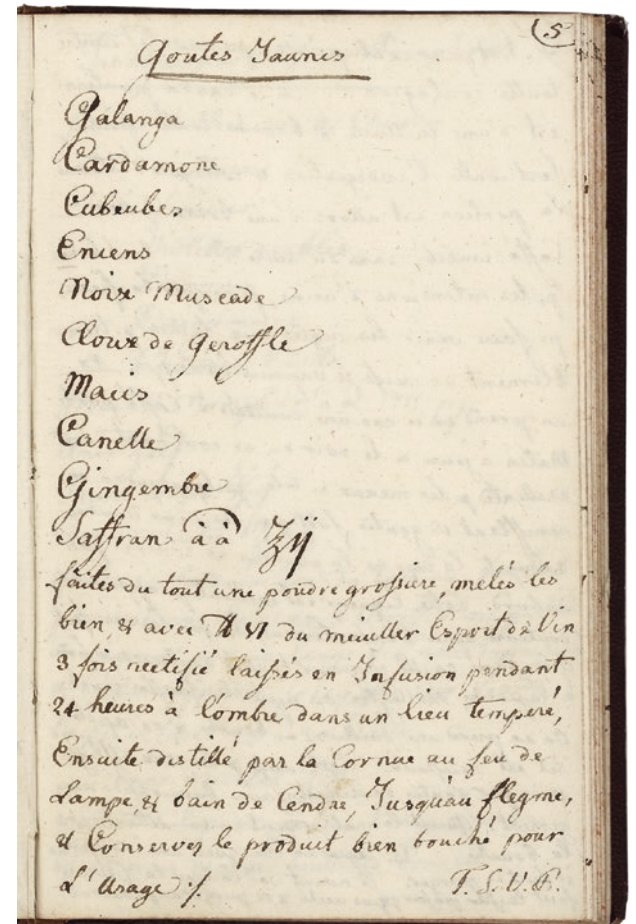 5
Goutes Jaunes
Galanga
Cardamone
Cubeubes
Encens
Noix Muscade
Cloux de Geroffle
Macis
Canelle
Gingembre
Saffran āā ʒij
faites du tout une poudre grossiere, melés les
bien, & avec ℔ VI du meuller Esprit de Vin
3 fois rectifié laissés en Infusion pendant
24 heures à l'ombre dans un lieu temperé,
Ensuite distillé par la Cornue au feu de
Lampe, & bain de Cendre, Jusqu'au flegme,
& Conserves le produit bien bouché pour
L'Usage ./. T. S. V. P.